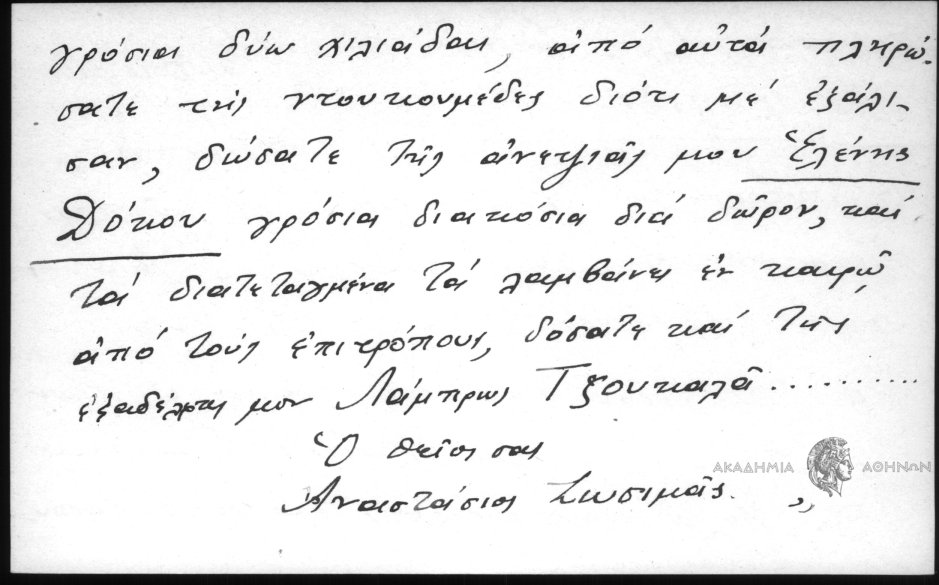 γρόσια δύω χιλιάδας, ἀπό αὐτά πληρώ-
σατε τῆς ντουκουμέδες διότι μέ ἐξάλι-
σαν, δώσατε τῆς ἀνεψιᾶς μου Ἑλένης
Δόκου γρόσια διακόσια διά δῶρον, καί
τά διατεταγμένα τά λαμβάνει ἐν καιρῷ
ἀπό τούς ἐπιτρόπους, δόσατε καί τῆς
ἐξαδέλφης μου Λάμπρως Τζουκαλᾶ ..........
Ὁ θεῖος σας
Ἀναστάσιος Ζωσιμᾶς. ,,
ΑΚΑΔΗΜΙΑ ΑΘΗΝΩΝ